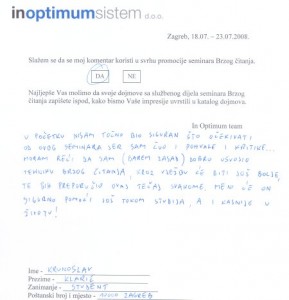 inoptimumsistem d.o.o.
Zagreb, 18.07. – 23.07.2008.
Slažem se da se moj komentar koristi u svrhu promocije seminara Brzog čitanja.
DA NE
Najljepše Vas molimo da svoje dojmove sa službenog dijela seminara Brzog
čitanja zapišete ispod, kako bismo Vaše impresije uvrstili u katalog dojmova.
In Optimum team
U POČETKU NISAM TOČNO BIO SIGURAN ŠTO OČEKIVATI
OD OVOG SEMINARA JER SAM ČUO I POHVALE I KRITIKE...
MORAM REĆI DA SAM (BAREM ZASAD) DOBRO USVOJIO
TEHNIKU BRZOG ČITANJA, KROZ VJEŽBU ĆE BITI JOŠ BOLJE,
TE BIH PREPORUČIO OVAJ TEČAJ SVAKOME. MENI ĆE ON
SIGURNO POMOĆI JOŠ TOKOM STUDIJA, A I KASNIJE U
ŽIVOTU!
Ime - KRUNOSLAV
Prezime - KLARIĆ
Zanimanje - STUDENT
Poštanski broj i mjesto - ZAGREB